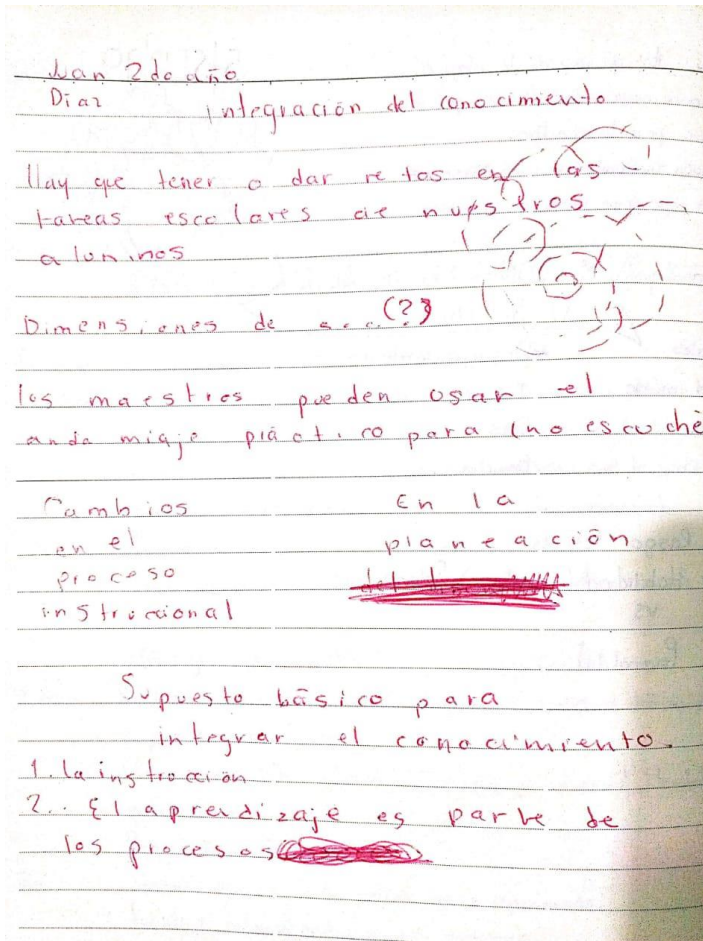 Juan 2do año
Diaz
Integración del conocimiento
Hay que tener o dar retos en las
tareas escolares de nuestros
alumnos
Dimensiones de ....(?)
los maestros pueden usar el
andamiaje práctico para (no escuché
Cambios
en el
proceso
instruccional
En la
planeación
Supuesto básico para
integrar el conocimiento.
1. la instrucción
2.. El aprendizaje es parte de
los procesos